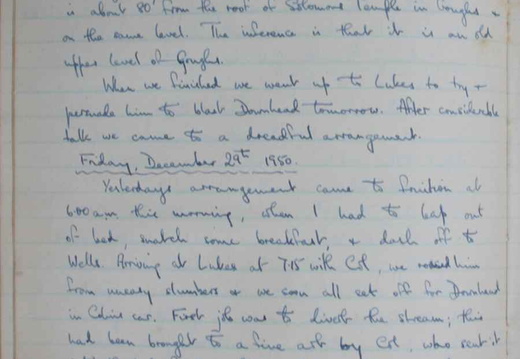 is about 80' from the roof of Solomons Temple in Goughs &
on the same level. The inference is that it is an old
upper level of Goughs.
When we finished we went up to Lukes to try &
persuade him to blast Downhead tomorrow. After considerable
talk we came to a dreadful arrangement.
Friday, December 29th 1950.
Yesterdays arrangement came to fruition at
6.00 am this morning, when I had to leap out
of bed, snatch some breakfast, & dash off to
Wells. Arriving at Lukes at 7.15 with Col, we him
from uneasy slumbers & we soon all set off for Downhead
in car. First job was to divert the stream; this
had been brought to a fine art by Col, who sent it